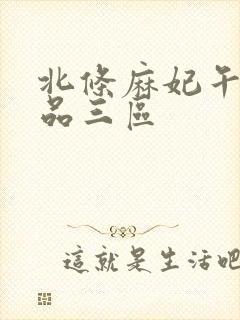 北條麻妃午
品三區
這就是生活吧